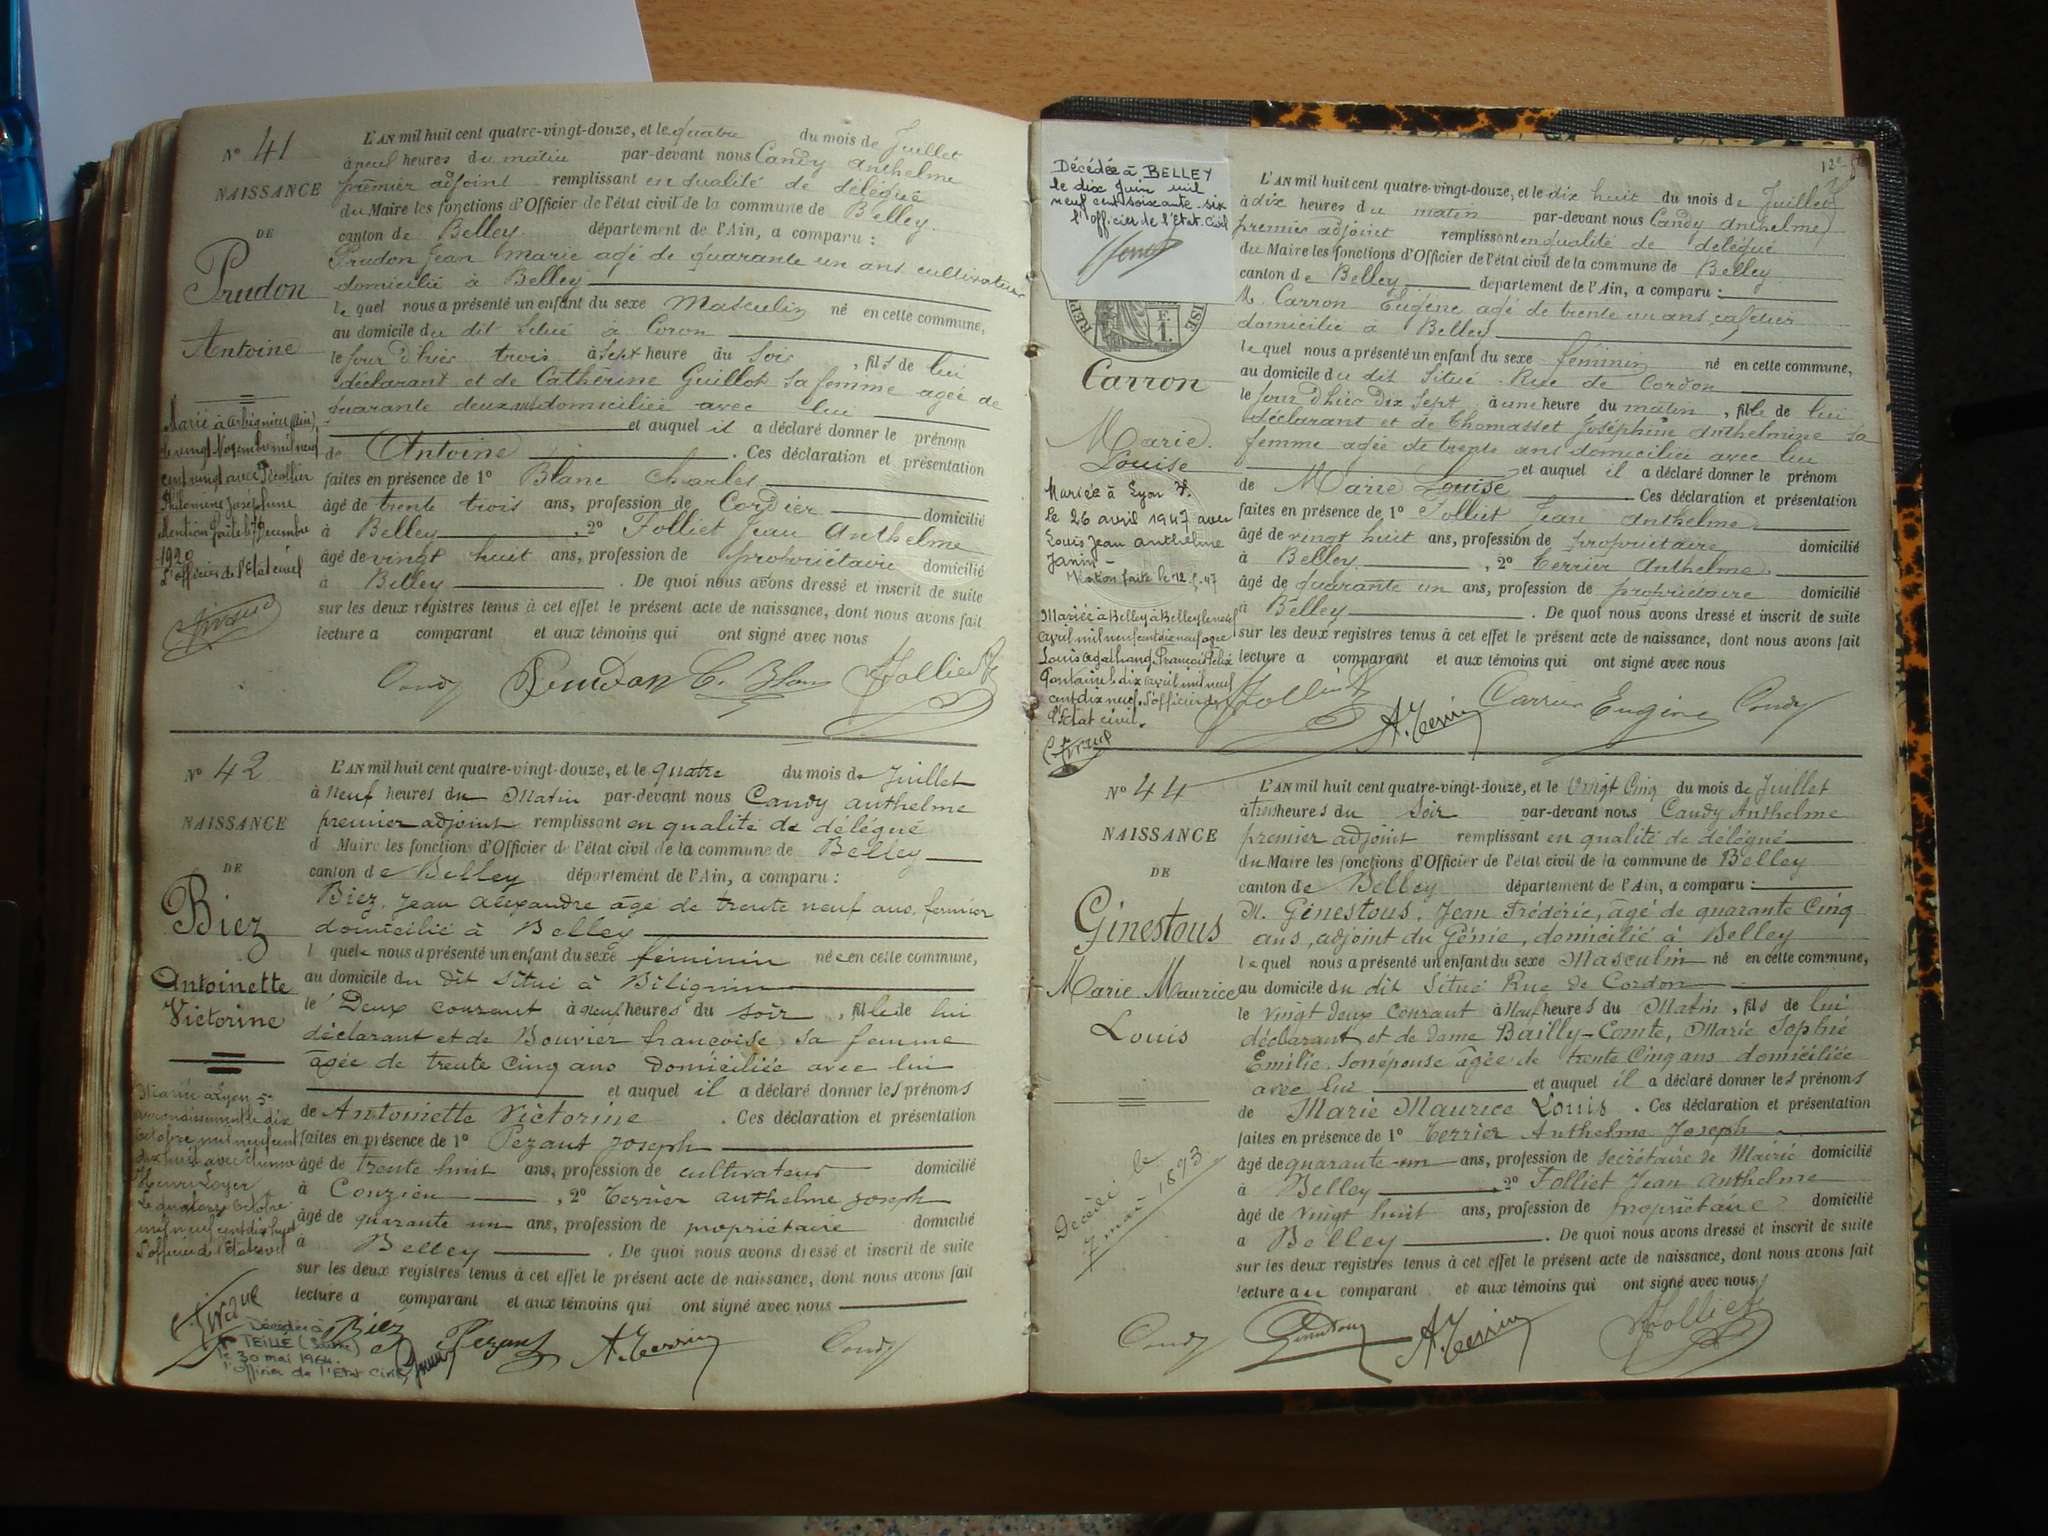 N° 41
NAISSANCE
DE
Prudon
Antoine
Marié à Arbignieu (Ain),
le vingt Novembre mil neuf
cent vingt avec Pécollier
Philomène Joséphine
Mention faite le 7 Décembre
1920
L'officier de l'État civil
L'AN mil huit cent quatre-vingt-douze, et le quatre du mois de Juillet
à neuf heures du matin par-devant nous Candy Anthelme
premier adjoint remplissant en qualité de délégué
du Maire les fonctions d'Officier de l'état civil de la commune de Belley
canton de Belley département de l'Ain, a comparu :
Prudon Jean Marie agé de quarante un ans cultivateur
domicilié à Belley
le quel nous a présenté un enfant du sexe Masculin né en cette commune,
au domicile du dit situé à Coron
le jour d'hier trois à sept heure du soir, fils de lui
déclarant et de Catherine Guillot sa femme agée de
quarante deux ans domiciliée avec lui
et auquel il a déclaré donner le prénom
de Antoine. Ces déclaration et présentation
faites en présence de 1° Blanc Charles
âgé de trente trois ans, profession de Cordier domicilié
à Belley, 2° Folliet Jean Anthelme
âgé de vingt huit ans, profession de propriétaire domicilié
à Belley. De quoi nous avons dressé et inscrit de suite
sur les deux registres tenus à cet effet le présent acte de naissance, dont nous avons fait
lecture a comparant et aux témoins qui ont signé avec nous
Candy Prudon C. Blanc Folliet
N° 42
NAISSANCE
DE
Biez
Antoinette
Victorine
Mariée à Lyon 5e
arrondissement le dix
octobre mil neuf cent
dix huit avec Etienne
Henri Loyer
Le quatorze octobre
mil neuf cent dix huit
L'officier de l'Etat civil
Décédée à
TEILLÉ (Sarthe)
le 30 mai 1964.
l'Officier de l'Etat Civil,
L'AN mil huit cent quatre-vingt-douze, et le quatre du mois de Juillet
à Neuf heures du Matin par-devant nous Candy anthelme
premier adjoint remplissant en qualité de délégué
d Maire les fonctions d'Officier de l'état civil de la commune de Belley
canton de Belley département de l'Ain, a comparu :
Biez, Jean Alexandre âgé de trente neuf ans, fermier
domicilié à Belley
l quel nous a présenté un enfant du sexe féminin née en cette commune,
au domicile du dit situé à Bilignin
le Deux courant à neuf heures du soir, fille de lui
déclarant et de Bouvier françoise, sa femme
âgée de trente cinq ans domiciliée avec lui
et auquel il a déclaré donner les prénoms
de Antoinette Victorine. Ces déclaration et présentation
faites en présence de 1° Pezaut Joseph
âgé de trente huit ans, profession de cultivateur domicilié
à Conzieu, 2° Terrier anthelme Joseph
âgé de quarante un ans, profession de propriétaire domicilié
à Belley. De quoi nous avons dressé et inscrit de suite
sur les deux registres tenus à cet effet le présent acte de naissance, dont nous avons fait
lecture a comparant et aux témoins qui ont signé avec nous
Biez Pezaut A. Terrier Candy
Décédée à BELLEY
le dix Juin mil
neuf cent soixante-six
l'officier de l'Etat-Civil
Carron
Marie
Louise
Mariée à Lyon 7e
le 26 avril 1947 avec
Louis Jean anthelme
Janin -
Mention faite le 12.5.47
Mariée à Belley à Belley le neuf
avril mil neuf cent dix neuf avec
Louis Agathang François Félix
Fontaine le dix avril mil neuf
cent dix neuf. L'officier de
l'Etat civil.
L'AN mil huit cent quatre-vingt-douze, et le dix huit du mois de Juillet
à dix heures du matin par-devant nous Candy Anthelme
premier adjoint remplissant en qualité de délégué
du Maire les fonctions d'Officier de l'état civil de la commune de Belley
canton de Belley département de l'Ain, a comparu :
M. Carron Eugène agé de trente un ans, cafetier
domicilié à Belley
le quel nous a présenté un enfant du sexe féminin né en cette commune,
au domicile du dit situé Rue de Cordon
le jour d'hier Dix Sept à une heure du matin, fille de lui
déclarant et de Thomasset Joséphine Anthelmine sa
femme agée de trente ans domiciliée avec lui
et auquel il a déclaré donner le prénom
de Marie Louise. Ces déclaration et présentation
faites en présence de 1° Folliet Jean Anthelme
âgé de vingt huit ans, profession de propriétaire domicilié
à Belley, 2° Terrier Anthelme
âgé de quarante un ans, profession de propriétaire domicilié
à Belley. De quoi nous avons dressé et inscrit de suite
sur les deux registres tenus à cet effet le présent acte de naissance, dont nous avons fait
lecture a comparant et aux témoins qui ont signé avec nous
Folliet A. Terrier Carron Eugène Candy
N° 44
NAISSANCE
DE
Ginestous
Marie Maurice
Louis
Décédé le
7 mai 1893
L'AN mil huit cent quatre-vingt-douze, et le Vingt Cinq du mois de Juillet
à trois heures du Soir par-devant nous Candy Anthelme
premier adjoint remplissant en qualité de délégué
du Maire les fonctions d'Officier de l'état civil de la commune de Belley
canton de Belley département de l'Ain, a comparu :
M. Ginestous, Jean Frédéric, âgé de quarante Cinq
ans, adjoint du Génie, domicilié à Belley
le quel nous a présenté un enfant du sexe Masculin né en cette commune,
au domicile du dit situé Rue de Cordon
le vingt deux courant à Neuf heures du Matin, fils de lui
déclarant et de dame Bailly-Comte, Marie Sophie
Emilie son épouse âgée de trente Cinq ans domiciliée
avec lui et auquel il a déclaré donner les prénoms
de Marie Maurice Louis. Ces déclaration et présentation
faites en présence de 1° Terrier Anthelme Joseph
âgé de quarante-un ans, profession de Secrétaire de Mairie domicilié
à Belley, 2° Folliet Jean Anthelme
âgé de vingt huit ans, profession de propriétaire domicilié
a Belley. De quoi nous avons dressé et inscrit de suite
sur les deux registres tenus à cet effet le présent acte de naissance, dont nous avons fait
lecture au comparant et aux témoins qui ont signé avec nous
Candy Ginestous A. Terrier Folliet